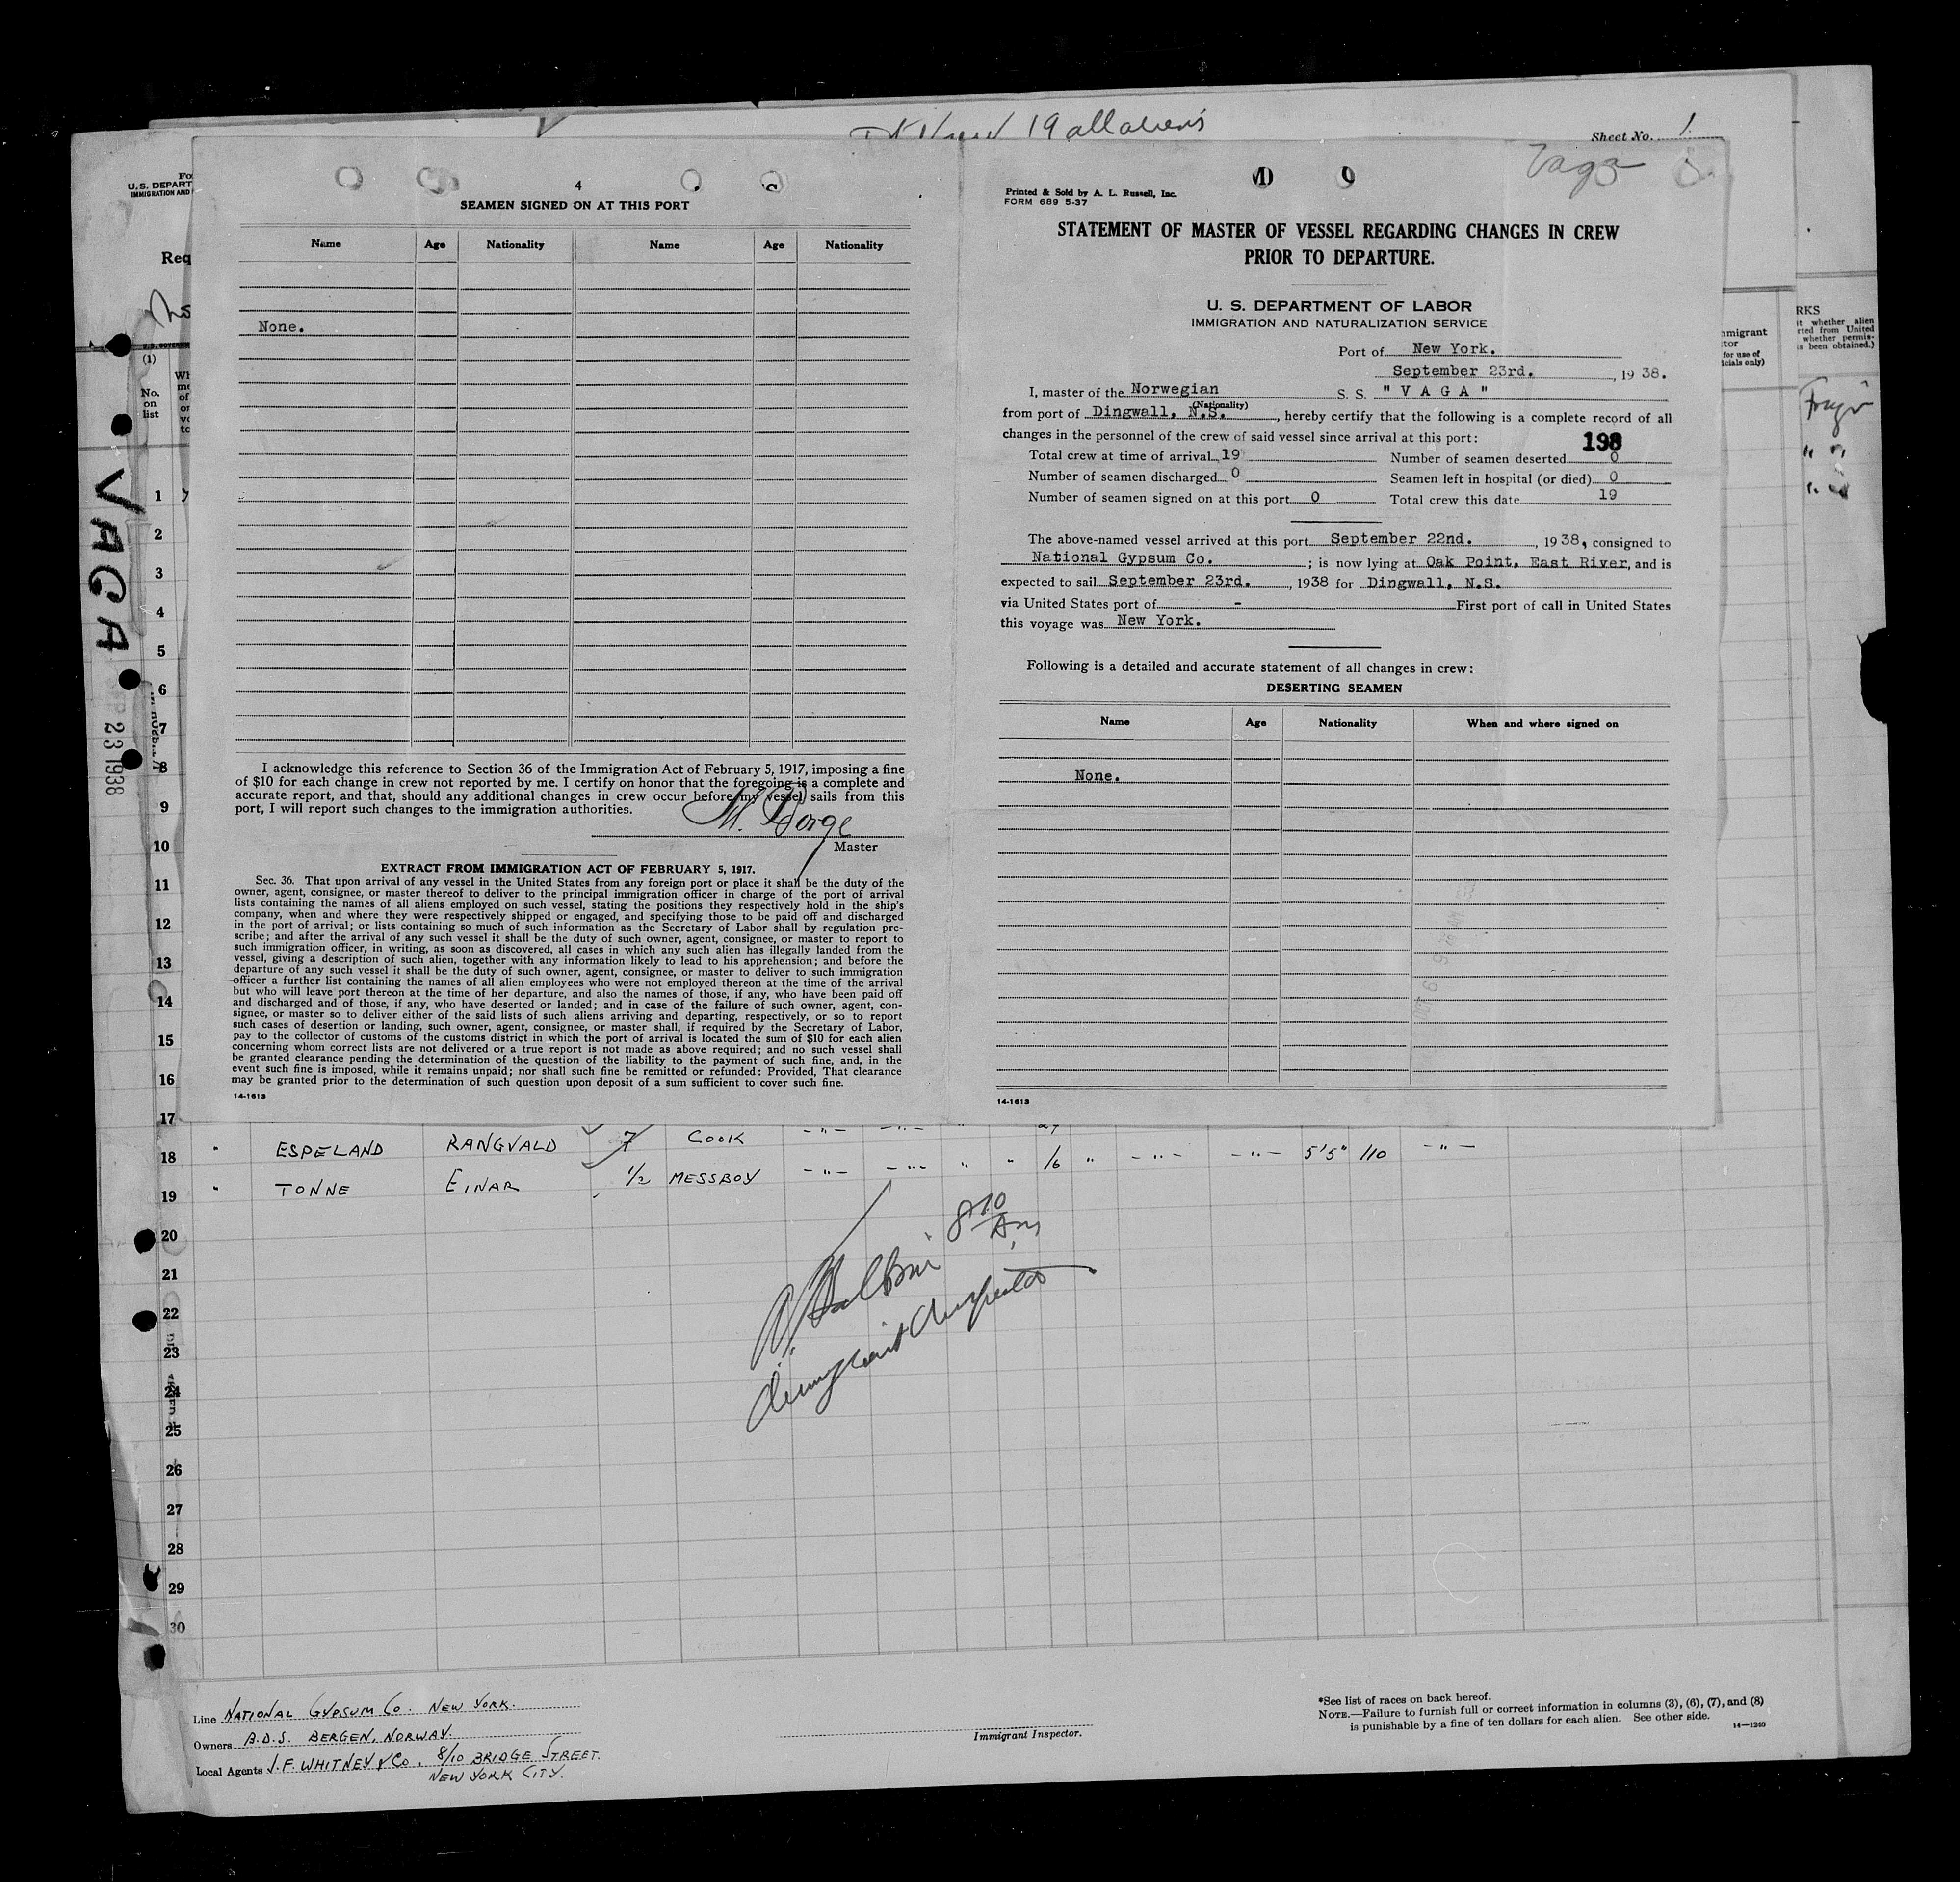 19 all aliens
Sheet No. 1.
U. S. DEPART
IMMIGRATION AND
Req
(1)
No.
on
list
VAGA
23 1938
4
SEAMEN SIGNED ON AT THIS PORT
Name Age Nationality Name Age Nationality
None.
I acknowledge this reference to Section 36 of the Immigration Act of February 5, 1917, imposing a fine
of $10 for each change in crew not reported by me. I certify on honor that the foregoing is a complete and
accurate report, and that, should any additional changes in crew occur before my vessel sails from this
port, I will report such changes to the immigration authorities.
M. Borge
Master
EXTRACT FROM IMMIGRATION ACT OF FEBRUARY 5, 1917.
Sec. 36. That upon arrival of any vessel in the United States from any foreign port or place it shall be the duty of the
owner, agent, consignee, or master thereof to deliver to the principal immigration officer in charge of the port of arrival
lists containing the names of all aliens employed on such vessel, stating the positions they respectively hold in the ship's
company, when and where they were respectively shipped or engaged, and specifying those to be paid off and discharged
in the port of arrival; or lists containing so much of such information as the Secretary of Labor shall by regulation pre-
scribe; and after the arrival of any such vessel it shall be the duty of such owner, agent, consignee, or master to report to
such immigration officer, in writing, as soon as discovered, all cases in which any such alien has illegally landed from the
vessel, giving a description of such alien, together with any information likely to lead to his apprehension; and before the
departure of any such vessel it shall be the duty of such owner, agent, consignee, or master to deliver to such immigration
officer a further list containing the names of all alien employees who were not employed thereon at the time of the arrival
but who will leave port thereon at the time of her departure, and also the names of those, if any, who have been paid off
and discharged and of those, if any, who have deserted or landed; and in case of the failure of such owner, agent, con-
signee, or master so to deliver either of the said lists of such aliens arriving and departing, respectively, or so to report
such cases of desertion or landing, such owner, agent, consignee, or master shall, if required by the Secretary of Labor,
pay to the collector of customs of the customs district in which the port of arrival is located the sum of $10 for each alien
concerning whom correct lists are not delivered or a true report is not made as above required; and no such vessel shall
be granted clearance pending the determination of the question of the liability to the payment of such fine, and, in the
event such fine is imposed, while it remains unpaid; nor shall such fine be remitted or refunded: Provided, That clearance
may be granted prior to the determination of such question upon deposit of a sum sufficient to cover such fine.
14-1613
Vaga
Printed & Sold by A. L. Russell, Inc.
FORM 689 5-37
STATEMENT OF MASTER OF VESSEL REGARDING CHANGES IN CREW
PRIOR TO DEPARTURE.
U. S. DEPARTMENT OF LABOR
IMMIGRATION AND NATURALIZATION SERVICE
Port of New York.
September 23rd., 1938.
I, master of the Norwegian S. S. " V A G A "
(Nationality)
from port of Dingwall, N.S., hereby certify that the following is a complete record of all
changes in the personnel of the crew of said vessel since arrival at this port:
198
Total crew at time of arrival 19 Number of seamen deserted 0
Number of seamen discharged 0 Seamen left in hospital (or died) 0
Number of seamen signed on at this port 0 Total crew this date 19
The above-named vessel arrived at this port September 22nd., 1938, consigned to
National Gypsum Co. ; is now lying at Oak Point, East River, and is
expected to sail September 23rd., 1938 for Dingwall, N.S.
via United States port of - First port of call in United States
this voyage was New York.
Following is a detailed and accurate statement of all changes in crew:
DESERTING SEAMEN
Name Age Nationality When and where signed on
None.
14-1613
RKS
whether alien
rted from United
whether permis-
been obtained.)
1
2
3
4
5
6
7
8
9
10
11
12
13
14
15
16
17
18 " ESPELAND RANGVALD 7 COOK -"- -"-
19 " TONNE EINAR 1/2 MESSBOY -"- -"- " " 16 " -"- -"- 5'5" 110 -"-
20
21
22
23
24
25
26
27
28
29
30
8 10 AM
Immigrant Inspector
Line NATIONAL GYPSUM CO. NEW YORK.
Owners B.D.S. BERGEN, NORWAY.
Local Agents J.F. WHITNEY & Co, 8/10 BRIDGE STREET.
NEW YORK CITY.
Immigrant Inspector.
*See list of races on back hereof.
NOTE.—Failure to furnish full or correct information in columns (3), (6), (7), and (8)
is punishable by a fine of ten dollars for each alien. See other side.
14—1240